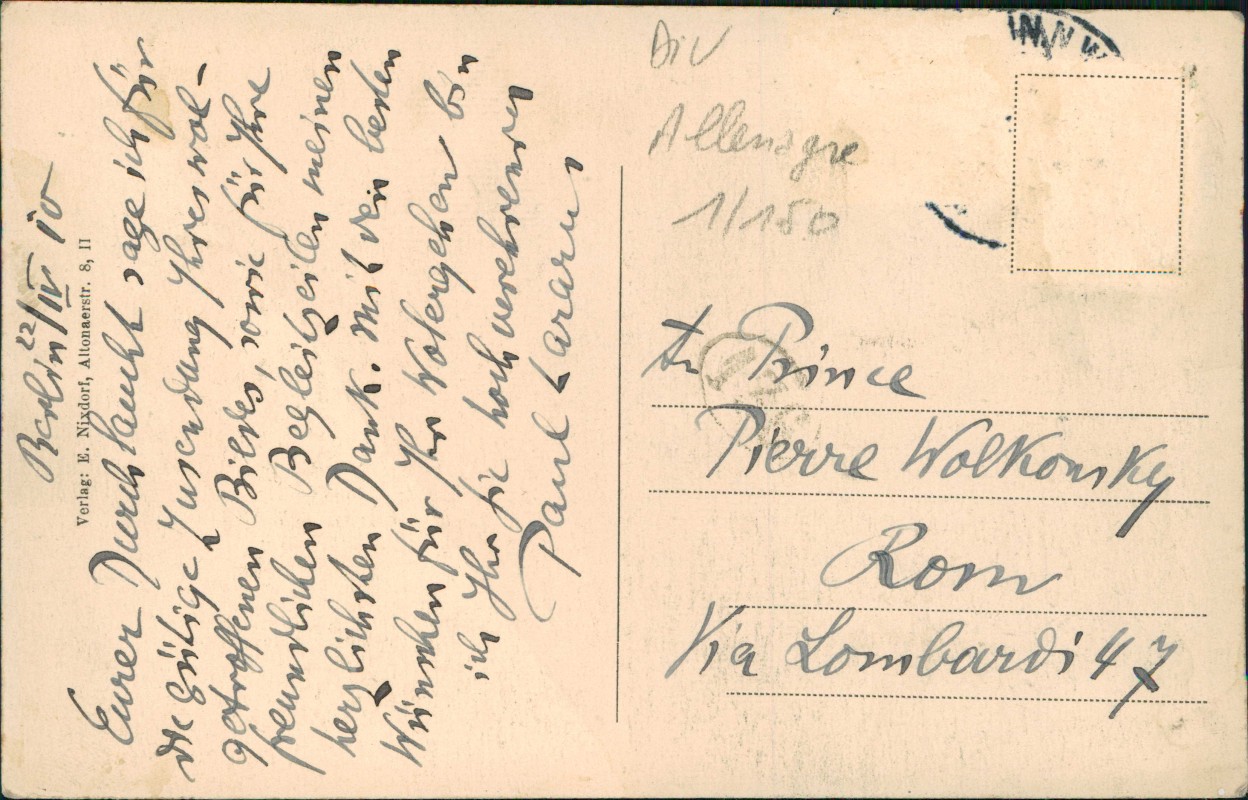 Berlin 22/IV 10
Verlag: E. Nixdorf, Altonaerstr. 8, II
Eurer Durchlaucht sage ich für
die gütige Zusendung Ihres wol-
getroffenen Bildes, sowie für Ihre
freundlichen Begleitzeilen meinen
herzlichsten Dank. Mit den besten
Wünschen für Ihr Wolergehen bin
ich Ihr Sie hochverehrender
Paul
DIV
Allemagne
1/150
Prince
Pierre Wolkonsky
Rom
Via Lombardi 47